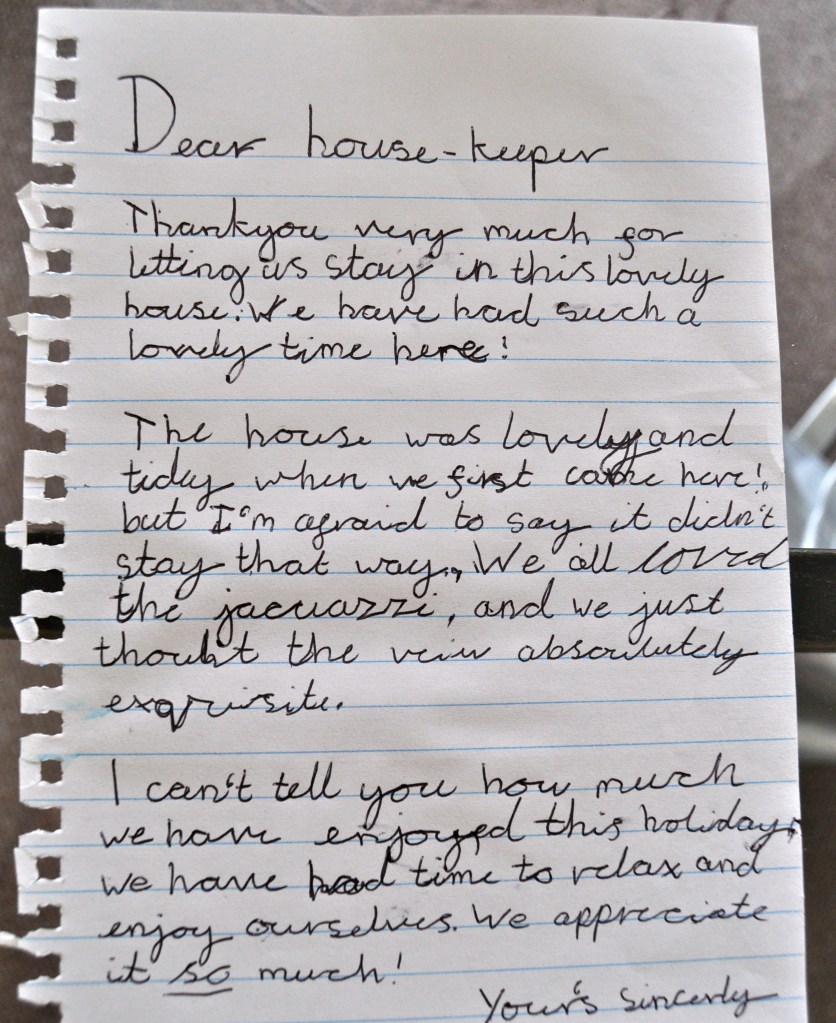 Dear house-keeper
Thankyou very much for
letting us stay in this lovely
house. We have had such a
lovely time here!
The house was lovely and
tidy when we first came here!
but I'm afraid to say it didn't
stay that way., We all loved
the jacuazzi, and we just
thouht the veiw absoulutely
exquisite.
I can't tell you how much
we have enjoyed this holiday,
we have had time to relax and
enjoy ourselves. We appreciate
it so much!
Your's sincerly